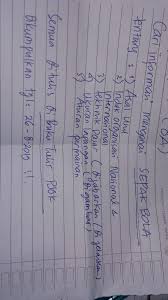 Cari Informasi Mengenai SEPAK BOLA
tentang : 1) Asal Usul
2) Induk organisasi Nasional &
Internasional
3) Tekhnik Dasar (
4) Ukuran Lapangan (
5) Aturan permainan
Semua di tulis di Buku Tulis PJOK
Dikumpulkan tgl: 26-8-2019 !!